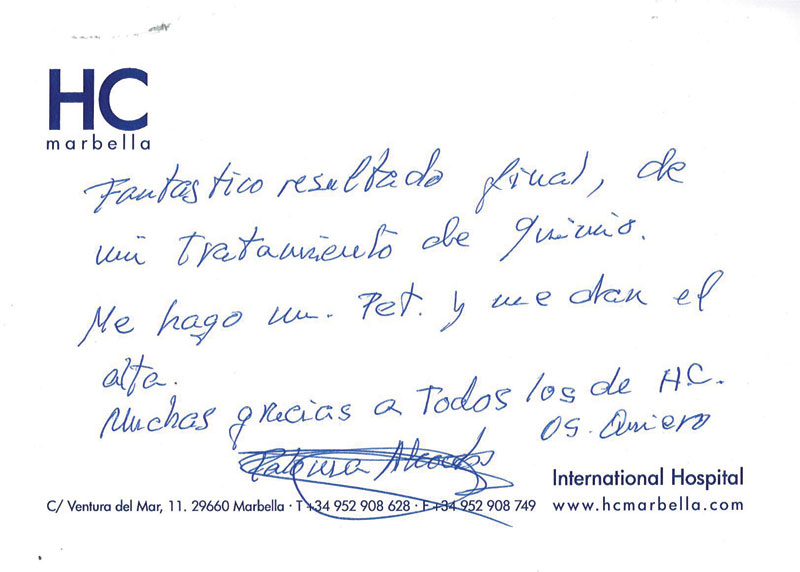 HC
marbella
Fantastico resultado final, de
mi tratamiento de quimio.
Me hago un. Pet. y me dan el
alta.
Muchas gracias a Todos los de H.C.
Os. Quiero
International Hospital
C/ Ventura del Mar, 11. 29660 Marbella · T +34 952 908 628 · F +34 952 908 749
www.hcmarbella.com